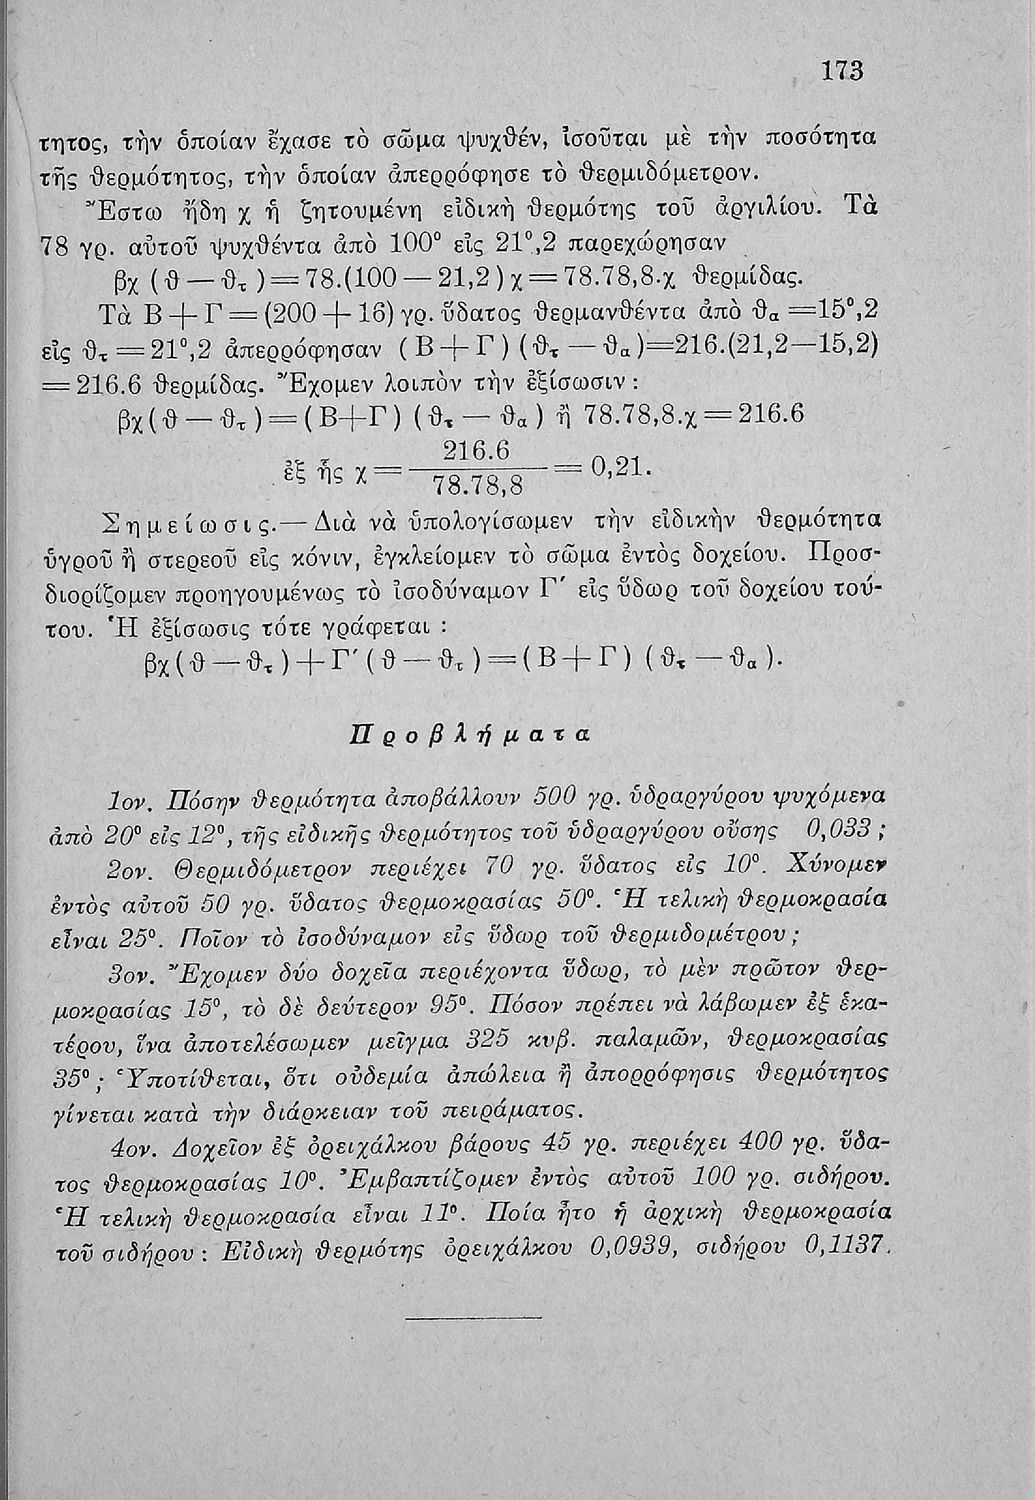 173
τητος, τὴν ὁποίαν ἔχασε τὸ σῶμα ψυχθέν, ἰσοῦται μὲ τὴν ποσότητα
τῆς θερμότητος, τὴν ὁποίαν ἀπερρόφησε τὸ θερμιδόμετρον.
Ἔστω ἤδη χ ἡ ζητουμένη εἰδικὴ θερμότης τοῦ ἀργιλίου. Τὰ
78 γρ. αὐτοῦ ψυχθέντα ἀπὸ 100° εἰς 21°,2 παρεχώρησαν
βχ (θ — θτ ) = 78.(100 — 21,2) χ = 78.78,8.χ θερμίδας.
Τὰ Β + Γ = (200 + 16) γρ. ὕδατος θερμανθέντα ἀπὸ θα = 15°,2
εἰς θτ = 21°,2 ἀπερρόφησαν ( Β + Γ ) ( θτ — θα )=216.(21,2—15,2)
= 216.6 θερμίδας. Ἔχομεν λοιπὸν τὴν ἐξίσωσιν :
βχ(θ — θτ ) = ( Β+Γ ) ( θτ — θα ) ἢ 78.78,8.χ = 216.6
ἐξ ἧς χ = 216.6 / 78.78,8 = 0,21.
Σημείωσις.— Διὰ νὰ ὑπολογίσωμεν τὴν εἰδικὴν θερμότητα
ὑγροῦ ἢ στερεοῦ εἰς κόνιν, ἐγκλείομεν τὸ σῶμα ἐντὸς δοχείου. Προσ-
διορίζομεν προηγουμένως τὸ ἰσοδύναμον Γ′ εἰς ὕδωρ τοῦ δοχείου τού-
του. Ἡ ἐξίσωσις τότε γράφεται :
βχ(θ — θτ ) + Γ′ (θ — θτ ) = ( Β + Γ ) ( θτ — θα ).
Προβλήματα
1ον. Πόσην θερμότητα ἀποβάλλουν 500 γρ. ὑδραργύρου ψυχόμενα
ἀπὸ 20° εἰς 12°, τῆς εἰδικῆς θερμότητος τοῦ ὑδραργύρου οὔσης 0,033 ;
2ον. Θερμιδόμετρον περιέχει 70 γρ. ὕδατος εἰς 10°. Χύνομεν
ἐντὸς αὐτοῦ 50 γρ. ὕδατος θερμοκρασίας 50°. Ἡ τελικὴ θερμοκρασία
εἶναι 25°. Ποῖον τὸ ἰσοδύναμον εἰς ὕδωρ τοῦ θερμιδομέτρου ;
3ον. Ἔχομεν δύο δοχεῖα περιέχοντα ὕδωρ, τὸ μὲν πρῶτον θερ-
μοκρασίας 15°, τὸ δὲ δεύτερον 95°. Πόσον πρέπει νὰ λάβωμεν ἐξ ἑκα-
τέρου, ἵνα ἀποτελέσωμεν μεῖγμα 325 κυβ. παλαμῶν, θερμοκρασίας
35° ; Ὑποτίθεται, ὅτι οὐδεμία ἀπώλεια ἢ ἀπορρόφησις θερμότητος
γίνεται κατὰ τὴν διάρκειαν τοῦ πειράματος.
4ον. Δοχεῖον ἐξ ὀρειχάλκου βάρους 45 γρ. περιέχει 400 γρ. ὕδα-
τος θερμοκρασίας 10°. Ἐμβαπτίζομεν ἐντὸς αὐτοῦ 100 γρ. σιδήρου.
Ἡ τελικὴ θερμοκρασία εἶναι 11°. Ποία ἦτο ἡ ἀρχικὴ θερμοκρασία
τοῦ σιδήρου : Εἰδικὴ θερμότης ὀρειχάλκου 0,0939, σιδήρου 0,1137.